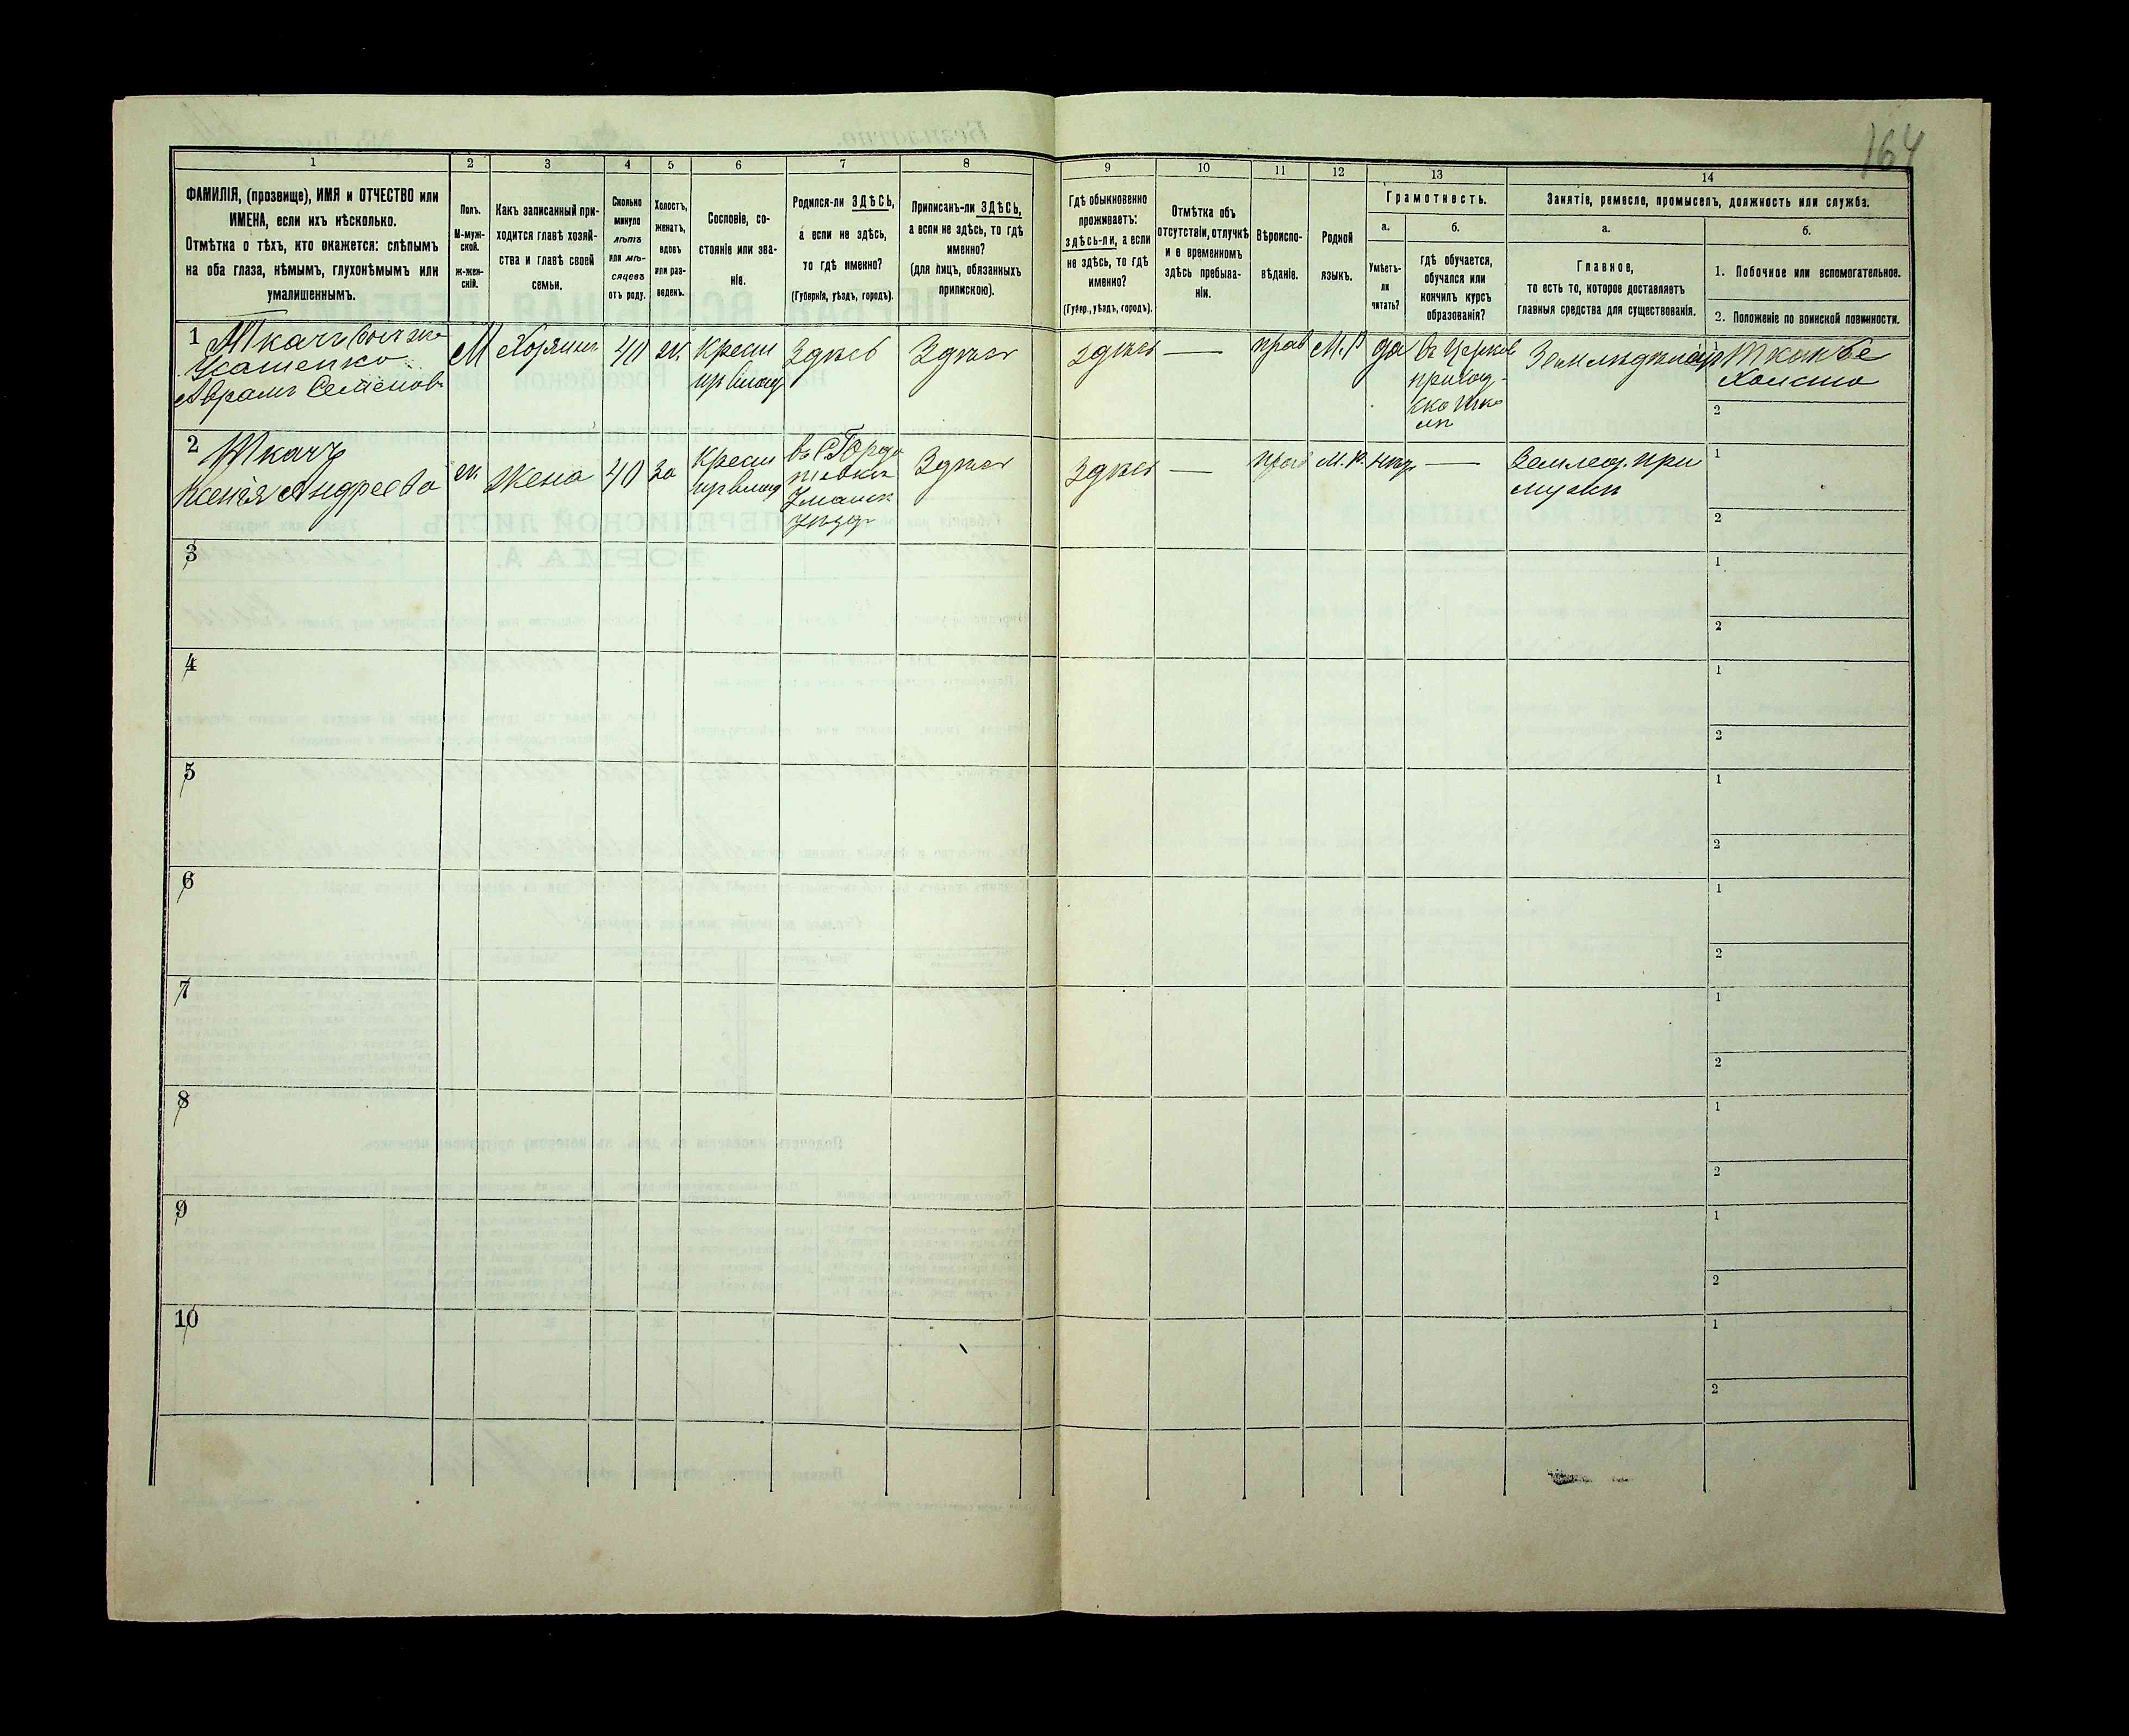 164
1
2
3
4
5
6
7
8
9
10
11
12
13
14
ФАМИЛІЯ, (прозвище), ИМЯ и ОТЧЕСТВО или
ИМЕНА, если ихъ нѣсколько.
Отмѣтка о тѣхъ, кто окажется: слѣпымъ
на оба глаза, нѣмымъ, глухонѣмымъ или
умалишеннымъ.
Полъ.
М-муж-
ской.
ж-жен-
скій.
Какъ записанный при-
ходится главѣ хозяй-
ства и главѣ своей
семьи.
Сколько
минуло
лѣтъ
или мѣ-
сяцевъ
отъ роду.
Холостъ,
женатъ,
вдовъ
или раз-
веденъ.
Сословіе, со-
стояніе или зва-
ніе.
Родился-ли ЗДѢСЬ,
а если не здѣсь,
то гдѣ именно?
(Губернія, уѣздъ, городъ).
Приписанъ-ли ЗДѢСЬ,
а если не здѣсь, то гдѣ
именно?
(для лицъ, обязанныхъ
припискою).
Гдѣ обыкновенно
проживаетъ:
здѣсь-ли, а если
не здѣсь, то гдѣ
именно?
(Губер., уѣздъ, городъ).
Отмѣтка объ
отсутствіи, отлучкѣ
и о временномъ
здѣсь пребыва-
ніи.
Вѣроиспо-
вѣданіе.
Родной
языкъ.
Грамотность.
а.
Умѣетъ-
ли
читать?
б.
гдѣ обучается,
обучался или
кончилъ курсъ
образованія?
Занятіе, ремесло, промыселъ, должность или служба.
а.
Главное,
то есть то, которое доставляетъ
главныя средства для существованія.
б.
1. Побочное или вспомогательное.
2. Положеніе по воинской повинности.
1 Ткачъ
Аврамъ Семенов
М
Хозяинъ
40
ж.
Крестн
Здѣсь
Здѣсь
здѣсь
—
прав
М. Р
да
въ Церков
приход-
Земледѣлец
1
2
2 Ткачъ
Ксенія Андреева
ж
Жена
40
за
Крестн
въ С Горо
Уманск
Уѣзд
Здѣсь
Здѣсь
—
прав
М. Р.
нѣт
—
Землед. при
мужѣ
1
2
3
1
2
4
1
2
5
1
2
6
1
2
7
1
2
8
1
2
9
1
2
10
1
2